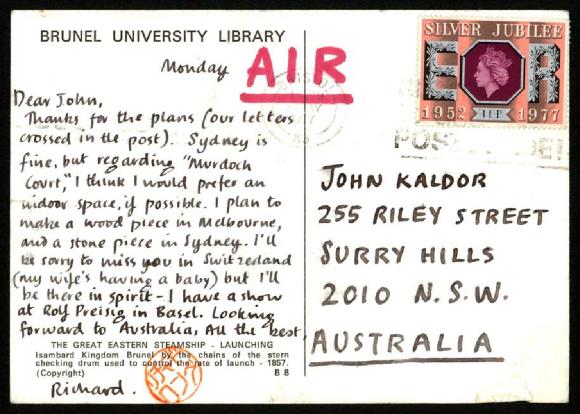 BRUNEL UNIVERSITY LIBRARY
Monday
AIR
Dear John,
Thanks for the plans (our letters
crossed in the post). Sydney is
fine, but regarding "Murdoch
Court," I think I would prefer an
indoor space, if possible. I plan to
make a wood piece in Melbourne,
and a stone piece in Sydney. I'll
be sorry to miss you in Switzerland
(my wife's having a baby) but I'll
be there in spirit – I have a show
at Rolf Preisig in Basel. Looking
forward to Australia, All the best
THE GREAT EASTERN STEAMSHIP - LAUNCHING
Isambard Kingdom Brunel by the chains of the stern
checking drum used to control the rate of launch - 1857.
(Copyright) B 8
Richard.
SILVER JUBILEE
E R
1952 11P 1977
JOHN KALDOR
255 RILEY STREET
SURRY HILLS
2010 N.S.W.
AUSTRALIA